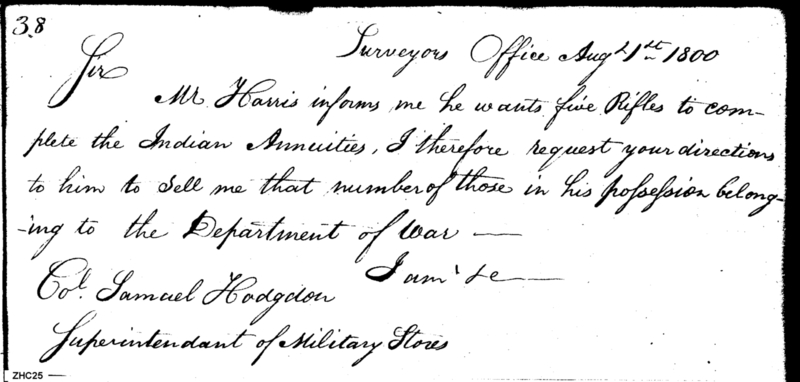 38
Surveyors Office Augt 1st 1800
Sir
Mr Harris informs me he wants five Rifles to com-
plete the Indian Annuities, I therefore request your directions
to him to sell me that number of those in his possession belong-
-ing to the Department of War —
I am &c —
Col. Samuel Hodgdon
Superintendant of Military Stores
ZHC25